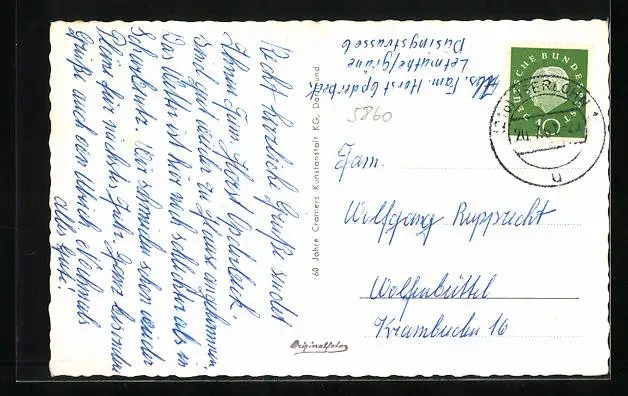 Recht herzliche Grüße sendet
Ihnen Fam. Horst Opderbeck
Sind gut wieder zu Hause angekommen.
Das Wetter ist hier noch schlechter als in
Schwarz. Wir schmieden schon wieder
Pläne für nächstes Jahr. Ganz besondere
Grüße auch an Ulrich. Nochmals
alles Gute!
60 Jahre Cramers Kunstanstalt KG, Dortmund
Originalfoto
Abs. Fam. Horst Opderbeck
Letmathe/Grüne
Düsingstrasse 6
5860
DEUTSCHE BUNDESPOST
10
ISERLOHN
u
Fam.
Wolfgang Rupprecht
Wolfenbüttel
Krambuden 16